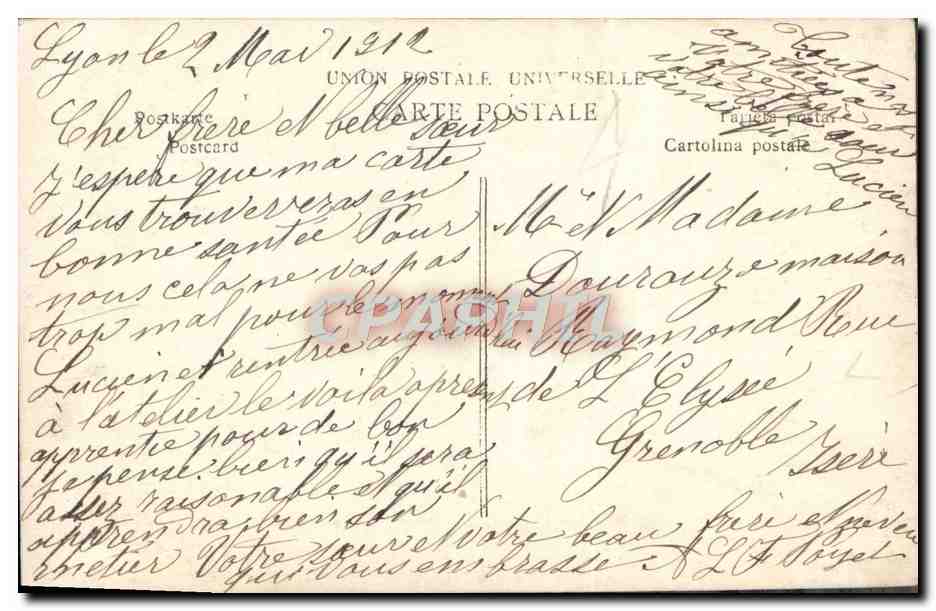 Lyon le 2 Mai 1912
UNION POSTALE UNIVERSELLE
CARTE POSTALE
Postkarte
Postcard
Tarjeta postal
Cartolina postale
Cher frère et belle sœur
j'espère que ma carte
vous trouverreras en
bonne santée Pour
nous cela ne vas pas
trop mal pour le moment
Lucien et rentrée aujourdui
à l'atelier le voila apresent
apprentie pour de bon
Je pense bien qu'il sera
assez raisonable et qu'il
apprendra bien son
métier Votre sœur et votre beau frère et neveu
qui vous embrasse A L F Poyet
Toutes nos
amitiées à
votre frère et
votre belle sœur
ainsi qu'a
Lucien
Mr et Madame
Dourouze maison
Raymond Rue
de L'Elysée
Grenoble
Isère
CPASHTL